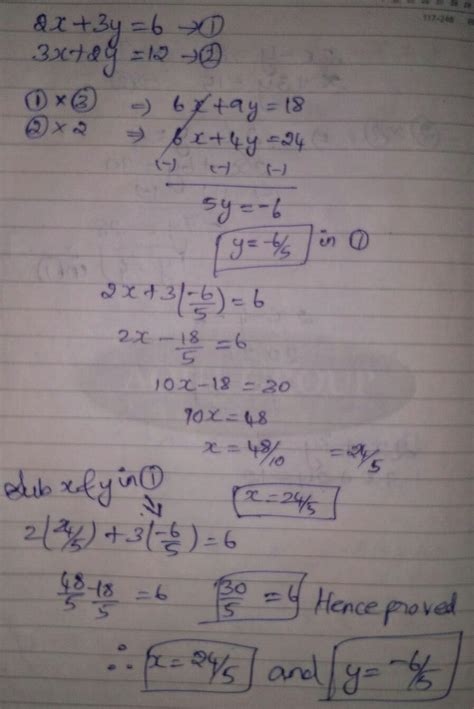 117-248
2x+3y=6 →①
3x+2y=12→②
①×③ ⇒ 6x+9y=18
②×2 ⇒ 6x+4y=24
(-) (-) (-)
5y=-6
y=-6/5 in ①
2x+3(-6/5)=6
2x-18/5=6
10x-18=30
10x=48
x=48/10 =24/5
Sub x&y in ① x=24/5
2(24/5)+3(-6/5)=6
48/5-18/5=6 30/5=6 Hence proved
∴ x=24/5 and y=-6/5